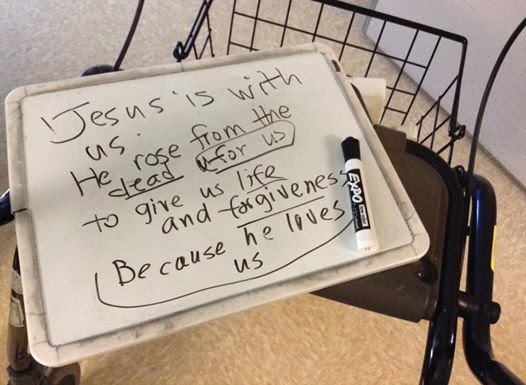 Jesus is with
us.
He rose from the
dead for us
to give us life
and forgiveness
Because he loves
us
EXPO